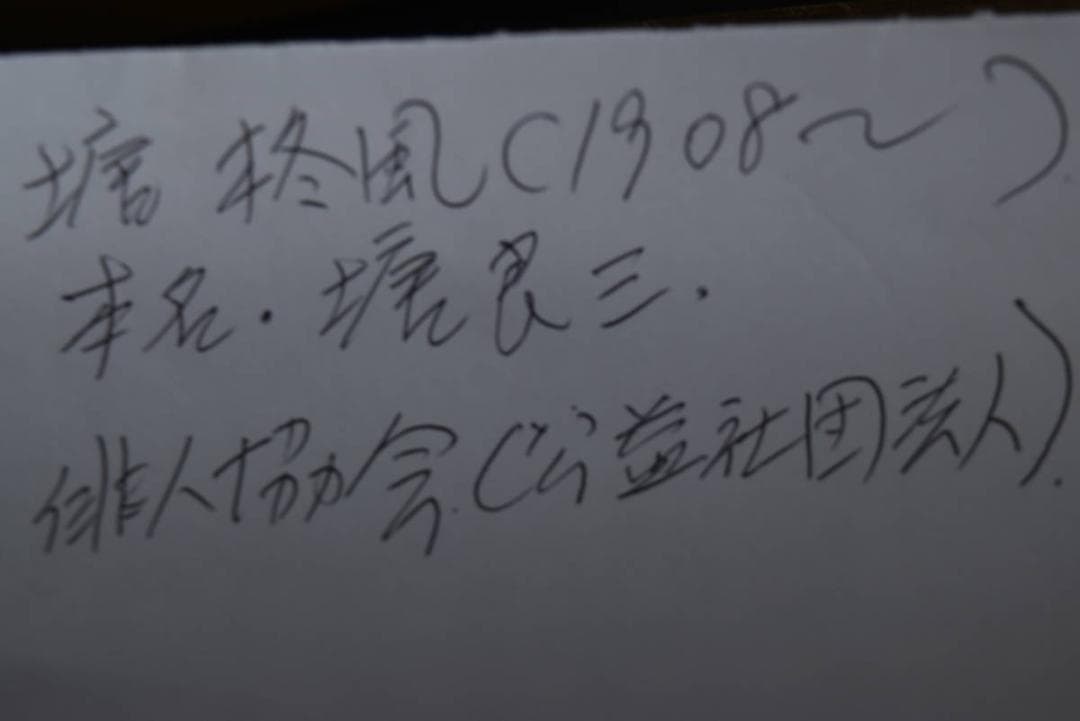 塘 柊風(1908~ )
本名.塘良三.
俳人協会.(公益社団法人).